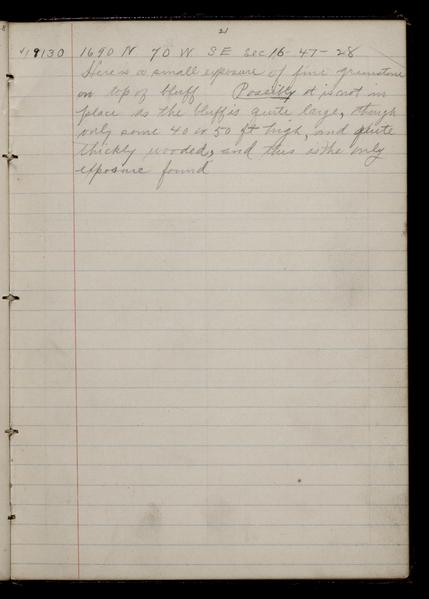 21
19130 1690 N 70 W SE Sec 16-47-28
Here is a small exposure of fine greenstone
on top of bluff Possibly it is not in
place as the bluff is quite large, though
only some 40 or 50 ft high, and quite
thickly wooded, and this is the only
exposure found